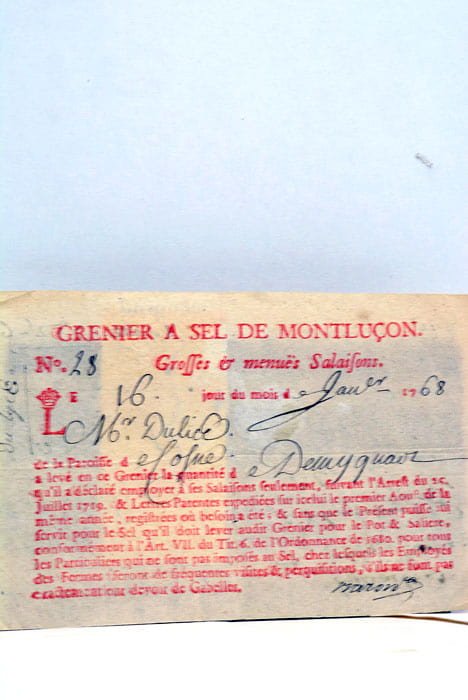 GRENIER A SEL DE MONTLUÇON.
Nº. 28 Groſſes & menuës Salaiſons.
LE 16. jour du mois de Janver 1768
Mr Dulice.
de la Paroiſſe de Coſne
a levé en ce Grenier la quantité de Demy quart
qu'il a déclaré employer à ſes Salaiſons ſeulement, ſuivant l'Arreſt du 25.
Juillet 1719. & Lettres Patentes expediées ſur icelui le premier Aouſt de la
même année, regiſtrées où beſoin a été; & ſans que le Préſent puiſſe lui
ſervir pour le Sel qu'il doit lever audit Grenier pour le Pot & Saliere,
conformément à l'Art. VII. du Tit. 6. de l'Ordonnance de 1680. pour tous
les Particuliers qui ne ſont pas impoſés au Sel, chez leſquels les Employés
des Fermes feront de fréquentes viſites & perquiſitions, s'ils ne ſont pas
exactement leur devoir de Gabelles.